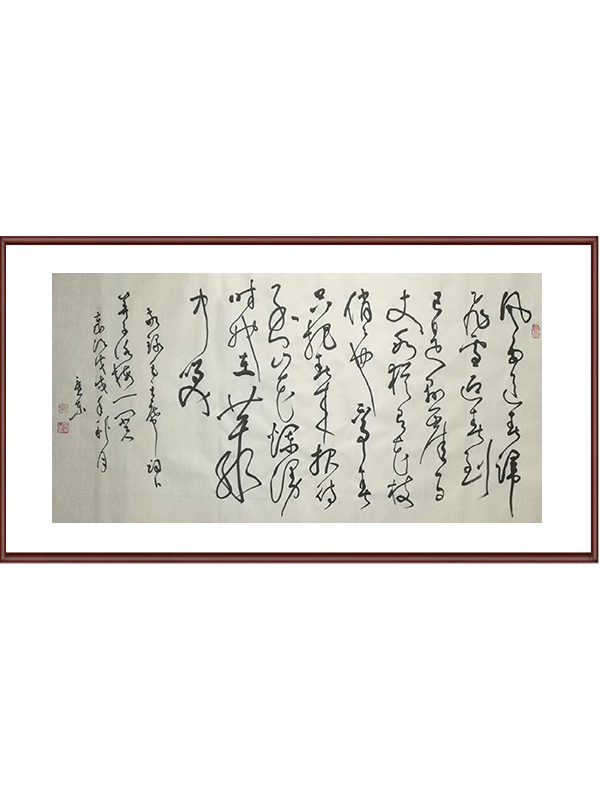 风雨送春归
飞雪迎春到
已是悬崖百
丈冰犹有花枝
俏俏也不争春
只把春来报待
到山花烂漫
时她在丛
中笑
敬录毛主席词卜
算子咏梅一阕
岁次戊戌年秋月